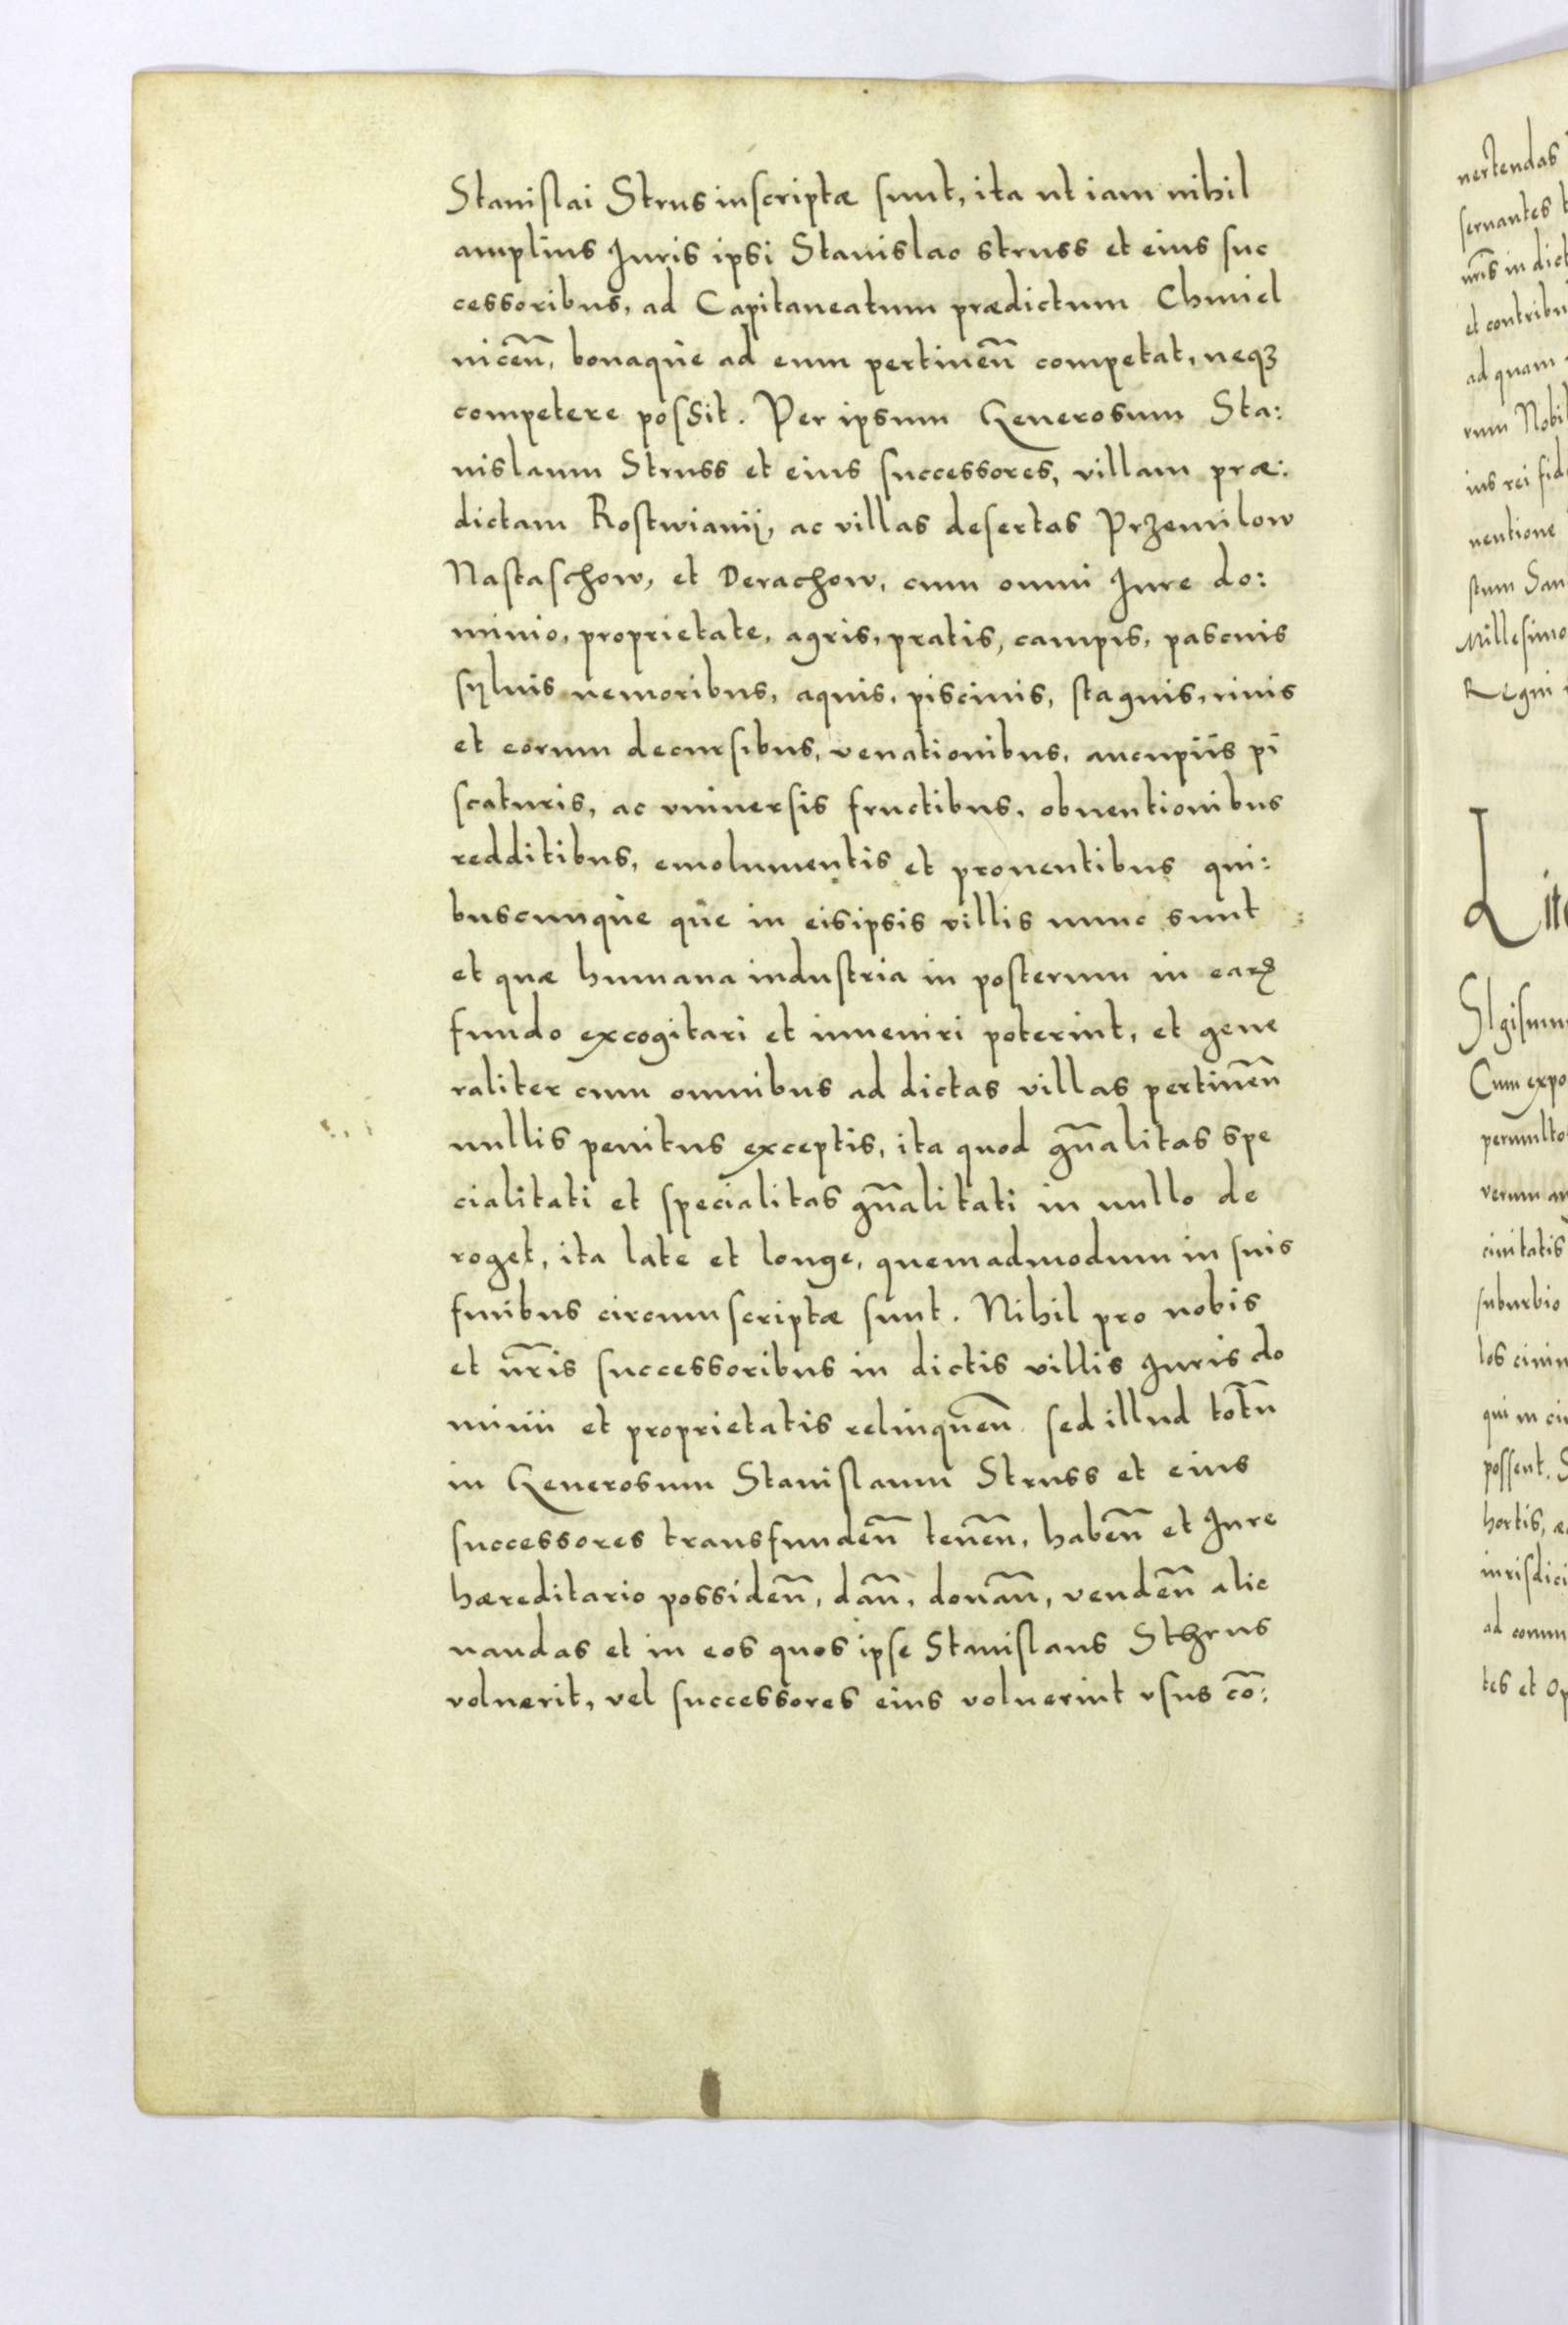 Stanislai Strus inscriptæ sunt, ita ut iam nihil
amplius Juris ipsi Stanislao struss et eius suc
cessoribus, ad Capitaneatum prædictum Chmiel
niceñ, bonaque ad eum pertineñ competat, neqꝫ
competere possit. Per ipsum Generosum Sta:
nislaum Struss et eius successores, villam præ:
dictam Rostwianij, ac villas desertas Przemilow
Nastaschow, et Derachow, cum omni Jure do:
minio, proprietate, agris, pratis, campis, pascuis
syluis nemoribus, aquis, piscinis, stagnis, riuis
et eorum decursibus, venationibus, aucupiis pi
scaturis, ac vniuersis fructibus, obuentionibus
redditibus, emolumentis et prouentibus qui:
buscunque que in eisipsis villis nunc sunt
et quæ humana industria in posterum in earꝝ
fundo excogitari et inueniri poterint, et gene
raliter cum omnibus ad dictas villas pertineñ
nullis penitus exceptis, ita quod gñalitas spe
cialitati et specialitas gñalitati in nullo de
roget, ita late et longe, quemadmodum in suis
finibus circumscriptæ sunt. Nihil pro nobis
et nr̃is successoribus in dictis villis Juris do
minii et proprietatis relinqueñ sed illud totũ
in Generosum Stanislaum Struss et eius
successores transfundeñ teneñ, habeñ et Jure
hæreditario possideñ, dañ, donañ, vendeñ alie
nandas et in eos quos ipse Stanislaus Sthrus
voluerit, vel successores eius voluerint vsus cõ:
uertendas
seruantes
nr̃is in dict
et contribu
ad quam
rum Nobil
ius rei fid
uentione
stum San
Millesimo
Regni
Lite
SIgismu
Cum expo
permulto
verum an
ciuitatis
suburbio
los ciuiu
qui in ci
possent. S
hortis, æ
iurisdici
ad commu
tes et op